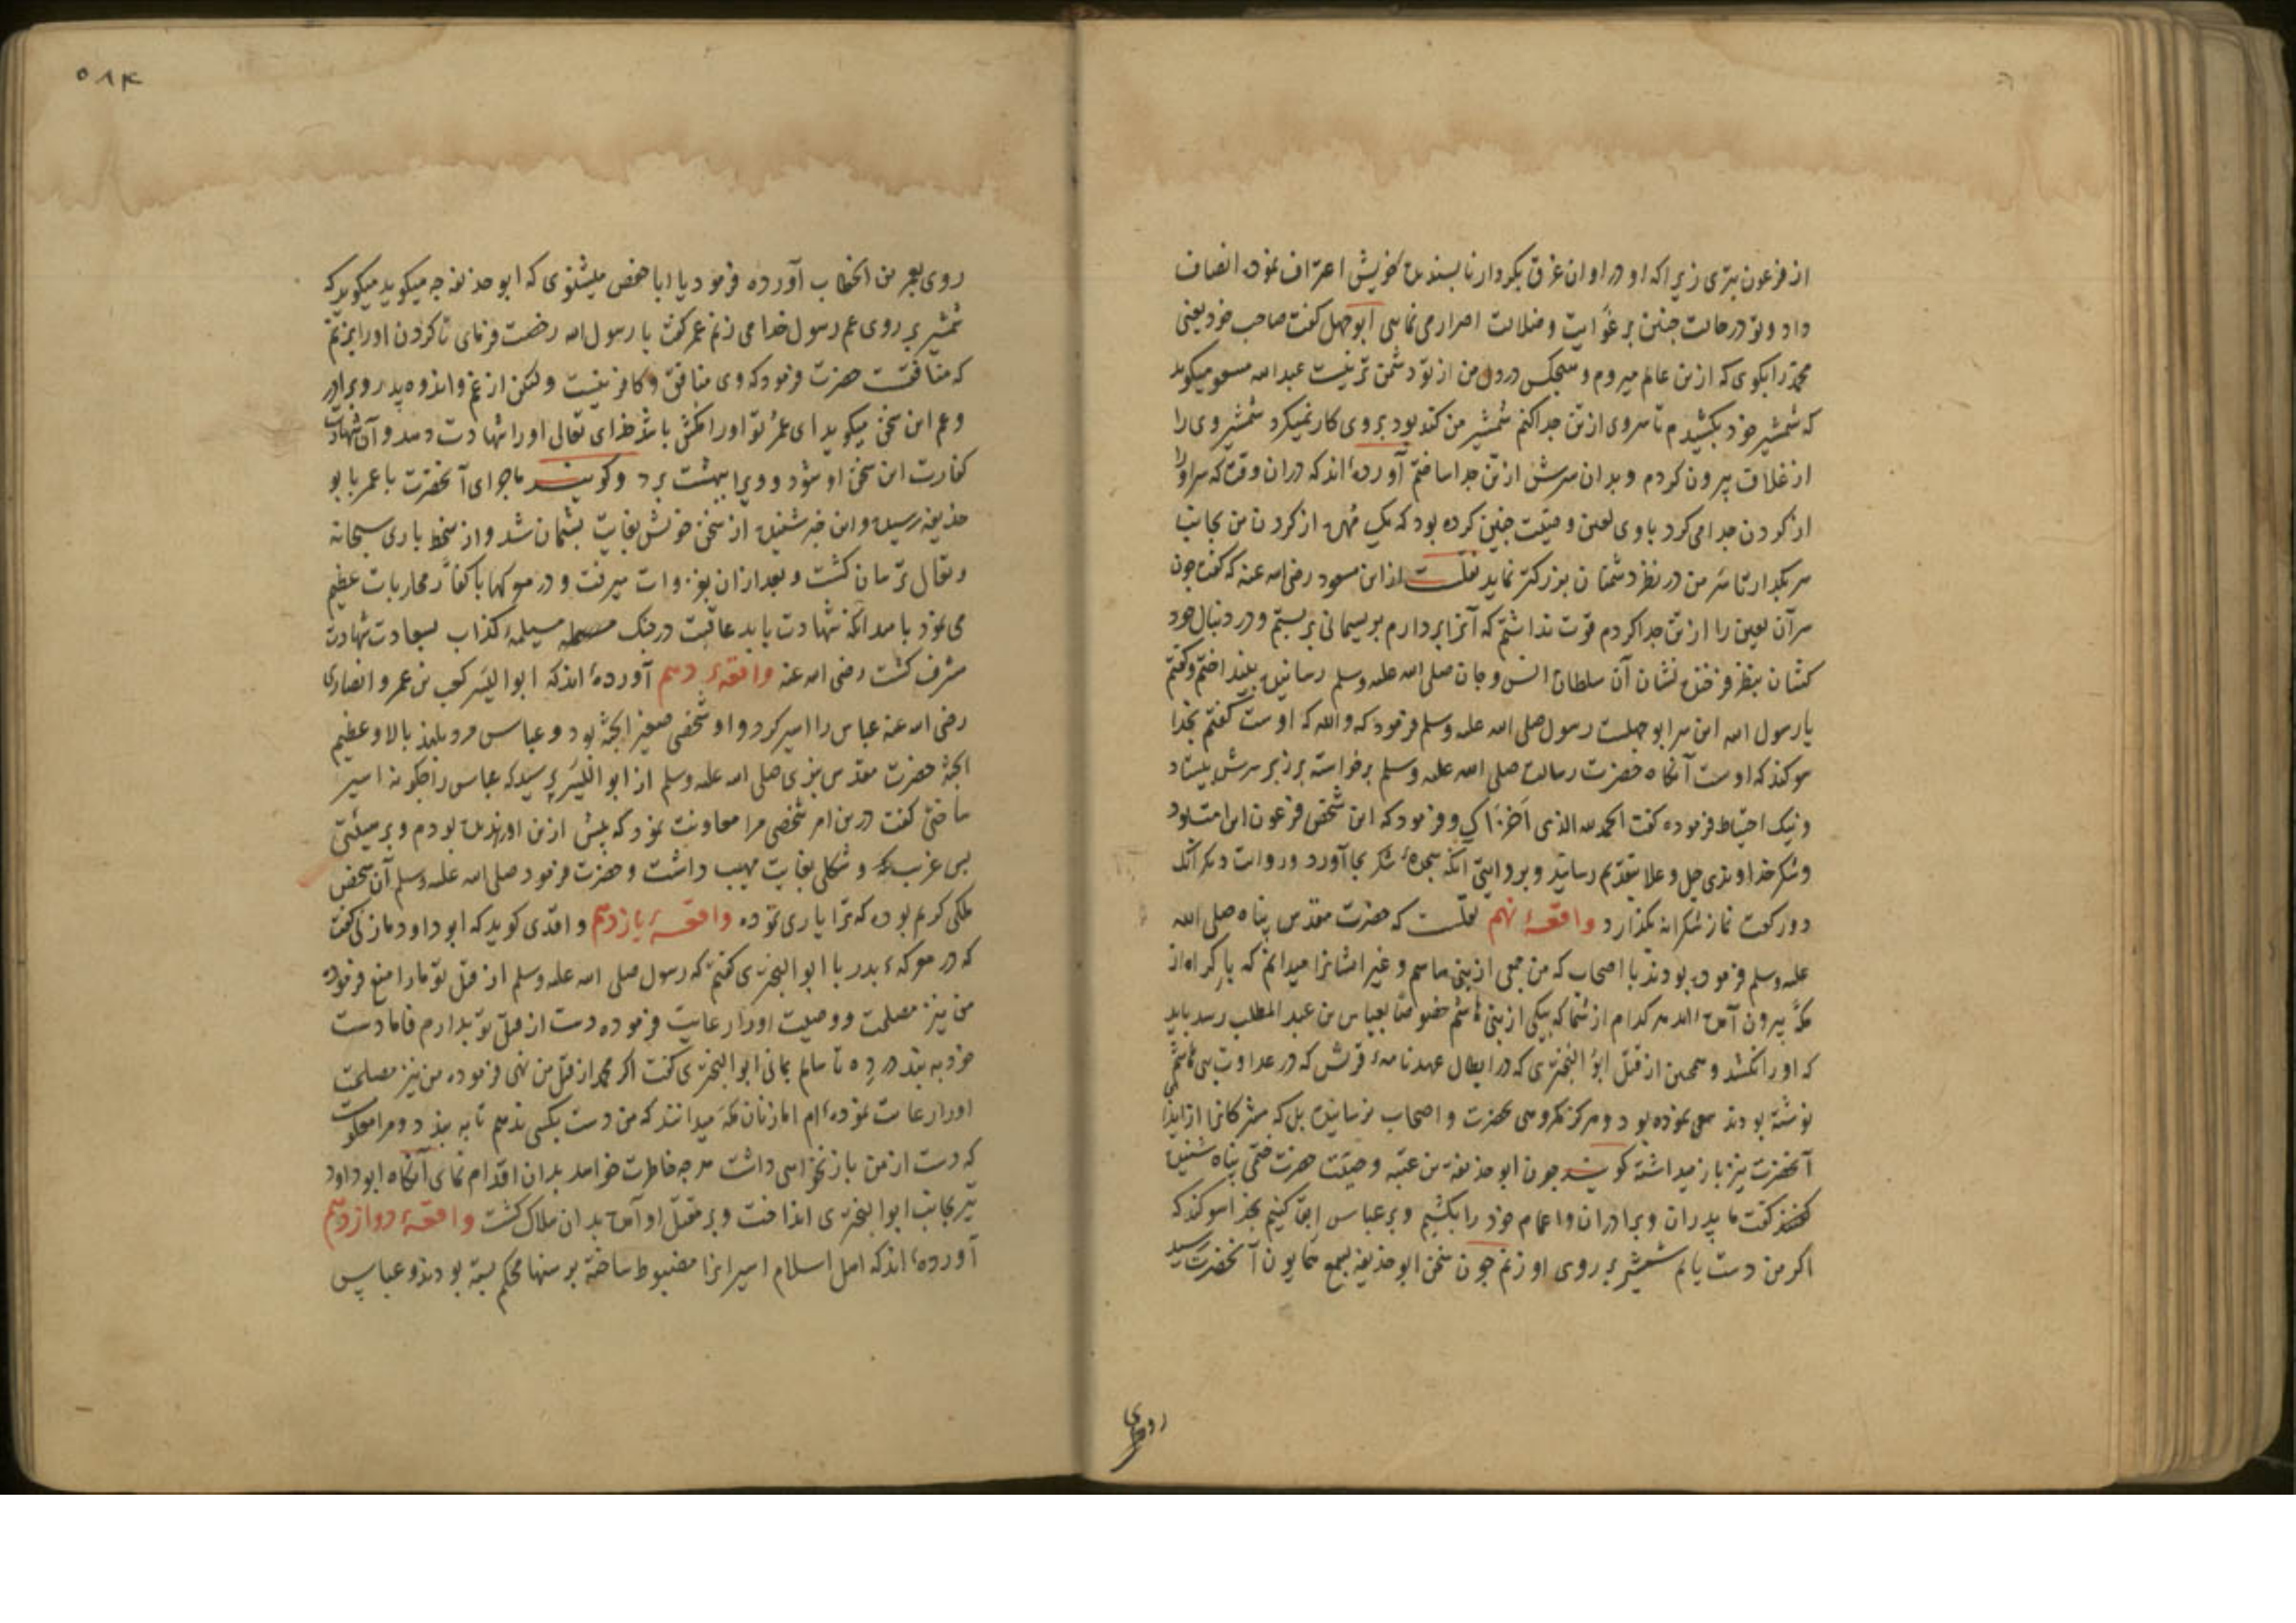 از فرعون بتری زیرا که او در اوان غرق بکردار ناپسندیدهٔ خویش اعتراف نموده انصاف
داد و تو در حالت چنین بر غوایت و ضلالت اصرار می نمایی ابوجهل کفت صاحب خود یعنی
محمد را بکوی که ازین عالم میروم و هیچکس در دل من از تو دشمن تر نیست عبد الله مسعود میکوید
که شمشیر خود بکشیدم تا سر وی از تن جدا کنم شمشیر من کند بود بروی کار نمیکرد شمشیر وی را
از غلاف بیرون کردم و بدان سرش از تن جدا ساختم آورده‌اند که دران وقت که سر او را
از کردن جدا می کرد با وی لعین وصیت چنین کرده بود که یک مهره از کردن من بجانب
سر بکذار تا سر من در نظر دشمنان بزرکتر نماید نقلست از ابن مسعود رضی الله عنه که کفت چون
سر آن لعین را از تن جدا کردم قوت نداشتم که آنرا بردارم بریسمانی بربستم و در دنبال خود
کشان بنظر فرخنده نشان آن سلطان انس و جان صلی الله علیه وسلم رسانیده بینداختم و کفتم
یا رسول الله این سر ابوجهلست رسول صلی الله علیه وسلم فرمود که والله که اوست کفتم بخدا
سوکند که اوست آنکاه حضرت رسالت صلی الله علیه وسلم برخواسته بر زبر سرش بیستاد
و نیک احتیاط فرموده کفت الحمد لله الذی اخزاک و فرمود که این شخص فرعون این امت بود
و شکر خداوندی جل و علا بتقدیم رسانید و بروایتی آنکه سجدهٔ شکر بجا آورد و روایت دیکر آنکه
دو رکعت نماز شکرانه بکذارد واقعهٔ نهم نقلست که حضرت مقدس پناه صلی الله
علیه وسلم فرموده بودند با اصحاب که من جمعی از بنی هاشم و غیر ایشانرا میدانم که باکراه از
مکه بیرون آمده‌اند هر کدام از شما که بیکی از بنی هاشم خصوصا بعباس بن عبد المطلب رسد باید
که او را نکشد و همچنین از قتل ابو البختری که در ابطال عهدنامهٔ قریش که در عداوت بنی هاشم
نوشته بودند سعی نموده بود و هرکز مکروهی بحضرت و اصحاب نرسانیده بل که مشرکانرا از ایذای
آنحضرت نیز باز میداشته کویند چون ابو حذیفه بن عتبه وصیت حضرت ختمی پناه شنید
کفت ما پدران و برادران و اعمام خود را بکشیم و بر عباس ابقا کنیم بخدا سوکند که
اکر من دست یابم شمشیر بر روی او زنم چون سخن ابو حذیفه بسمع همایون آنحضرت رسید
روی
۵۸۴
روی بعمر بن الخطاب آورده فرمود یا ابا حفص میشنوی که ابو حذیفه چه میکوید میکوید که
شمشیر بر روی عم رسول خدا می زنم عمر کفت یا رسول الله رخصت فرمای تا کردن او را بزنم
که منافقست حضرت فرمود که وی منافق و کافر نیست ولکن از غم و اندوه پدر و برادر
و عم این سخن میکوید ای عمر تو او را مکش باشد خدای تعالی او را شهادت دهد و آن شهادت
کفارت این سخن او شود و ویرا ببهشت برد و کویند ماجرای آنحضرت با عمر بابو
حذیفه رسیده و این خبر شنیده از سخن خویش بغایت پشیمان شد و از سخط باری سبحانه
و تعالی ترسان کشت و بعد ازان بغزوات میرفت و در معرکها با کفار محاربات عظیم
می نمود بامید آنکه شهادت یابد عاقبت در جنک مسیلمهٔ کذاب بسعادت شهادت
مشرف کشت رضی الله عنه واقعهٔ دهم آورده‌اند که ابو الیسر کعب بن عمرو انصاری
رضی الله عنه عباس را اسیر کرد و او شخصی صغیر الجثه بود و عباس مرد بلند بالا و عظیم
الجثه حضرت مقدس نبوی صلی الله علیه وسلم از ابو الیسر پرسید که عباس را چکونه اسیر
ساختی کفت درین امر شخصی مرا معاونت نمود که پیش ازین او را ندیده بودم و بر هیئتی
بس غریب و شکلی بغایت مهیب داشت و حضرت فرمود صلی الله علیه وسلم آن شخص
ملکی کریم بوده که ترا یاری نموده واقعهٔ یازدهم واقدی کوید که ابو داود مازنی کفت
که در معرکهٔ بدر با ابو البختری کفتم که رسول صلی الله علیه وسلم از قتل تو ما را منع فرموده
من نیز مصلحت و وصیت او را رعایت فرموده دست از قتل تو بدارم فاما دست
خود به بند در ده تا سالم بمانی ابو البختری کفت اکر محمد از قتل من نهی فرموده من نیز مصلحت
او را رعایت نموده‌ام اما زنان مکه میدانند که من دست بکسی ندهم تا به بندد و مرا معلومست
که دست از من باز نخواهی داشت هر چه خاطرت خواهد بدان اقدام نمای آنکاه ابو داود
تیر بجانب ابو البختری انداخت و بر مقتل او آمده بدان هلاک کشت واقعهٔ دوازدهم
آورده‌اند که اهل اسلام اسیرانرا مضبوط ساخته برسنها محکم بسته بودند و عباس